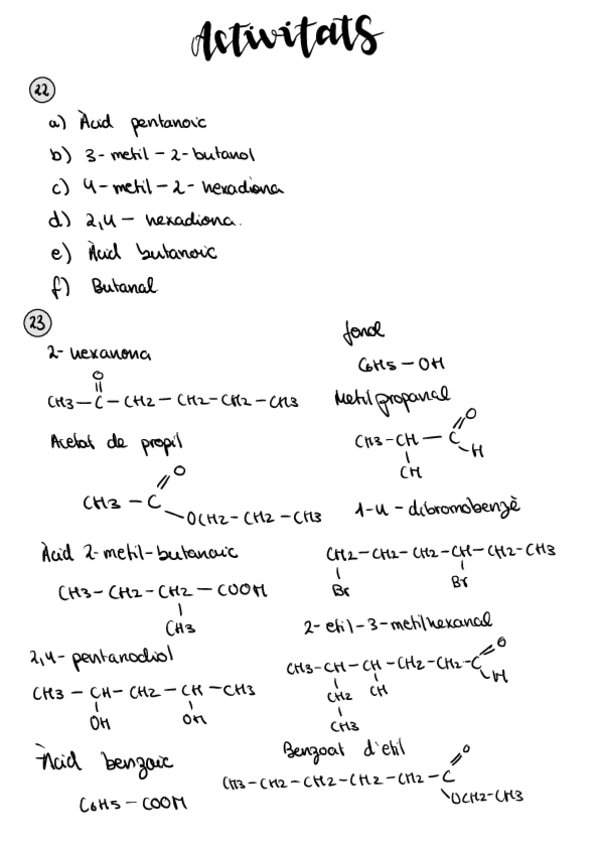 Activitats
22
a) Àcid pentanoic
b) 3-metil-2-butanol
c) 4-metil-2-hexadiona
d) 2,4-hexadiona.
e) Àcid butanoic
f) Butanal
23
2-hexanona
O
CH3-C-CH2-CH2-CH2-CH3
Acetat de propil
O
CH3-C
OCH2-CH2-CH3
Àcid 2-metil-butanoic
CH3-CH2-CH2-COOH
CH3
2,4-pentanodiol
CH3-CH-CH2-CH-CH3
OH OH
Àcid benzoic
C6H5-COOH
fenol
C6H5-OH
Metilpropanal
O
CH3-CH-C
H
CH
1-4-dibromobenzè
CH2-CH2-CH2-CH-CH2-CH3
Br Br
2-etil-3-metilhexanal
O
CH3-CH-CH-CH2-CH2-C
H
CH2 CH
CH3
Benzoat d'etil
O
CH3-CH2-CH2-CH2-CH2-C
OCH2-CH3